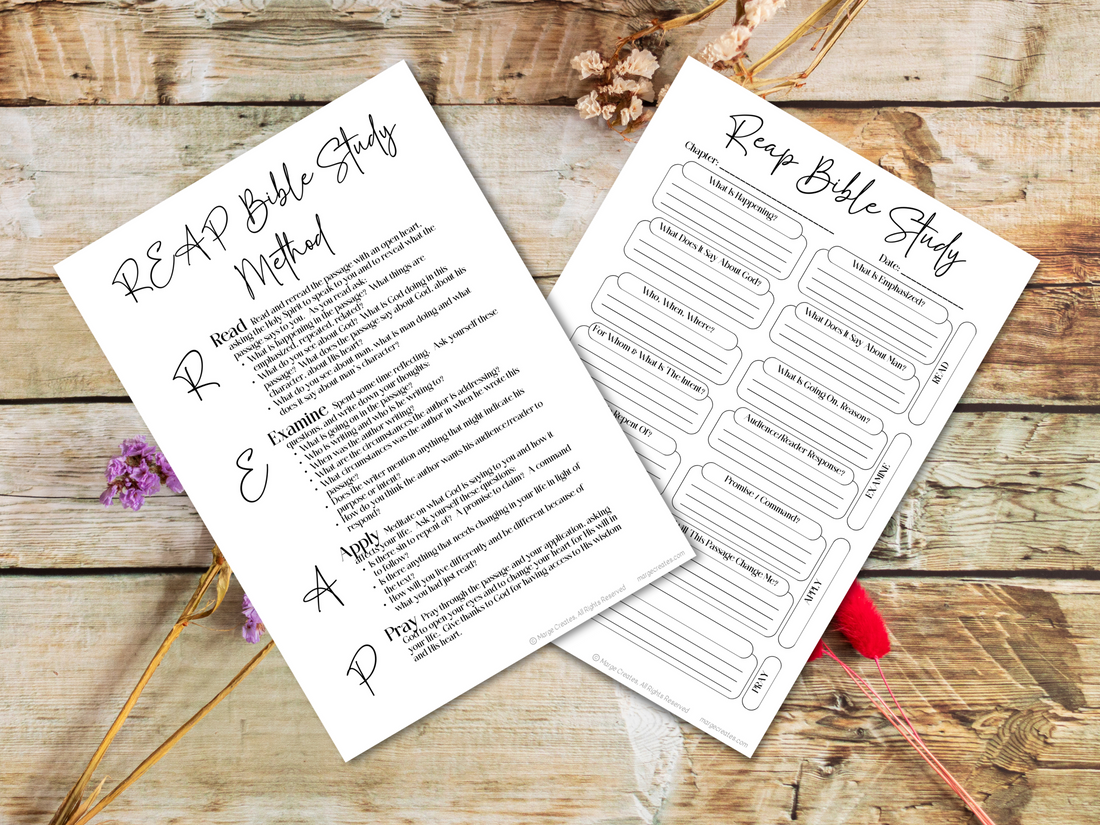 REAP Bible Study
Method
R
Read Read and reread the passage with an open heart,
asking the Holy Spirit to speak to you and to reveal what the
passage says to you. As you read ask:
• What is happening in the passage? What things are
emphasized, repeated, related?
• What do you see about God? What is God doing in this
passage? What does the passage say about God, about his
character, about His heart?
• What do you see about man, what is man doing and what
does it say about man's character?
E
Examine Spend some time reflecting. Ask yourself these
questions, and write down your thoughts:
• What is going on in the passage?
• Who is writing and who is he writing to?
• When was the author writing?
• What are the circumstances the author is addressing?
• What circumstances was the author in when he wrote this
passage?
• Does the writer mention anything that might indicate his
purpose or intent?
• How do you think the author wants his audience/reader to
respond?
A
Apply Meditate on what God is saying to you and how it
affects your life. Ask yourself these questions:
• Is there sin to repent of? A promise to claim? A command
to follow?
• Is there anything that needs changing in your life in light of
the text?
• How will you live differently and be different because of
what you had just read?
P
Pray Pray through the passage and your application, asking
God to open your eyes and to change your heart for His will in
your life. Give thanks to God for having access to His wisdom
and His heart.
© Marge Creates, All Rights Reserved margecreates.com
Reap Bible Study
Chapter:
Date:
What Is Happening?
What Is Emphasized?
What Does It Say About God?
What Does It Say About Man?
READ
Who, When, Where?
What Is Going On, Reason?
For Whom & What Is The Intent?
Audience/Reader Response?
EXAMINE
Repent Of?
Promise / Command?
This Passage Change Me?
APPLY
PRAY
© Marge Creates, All Rights Reserved margecreates.com